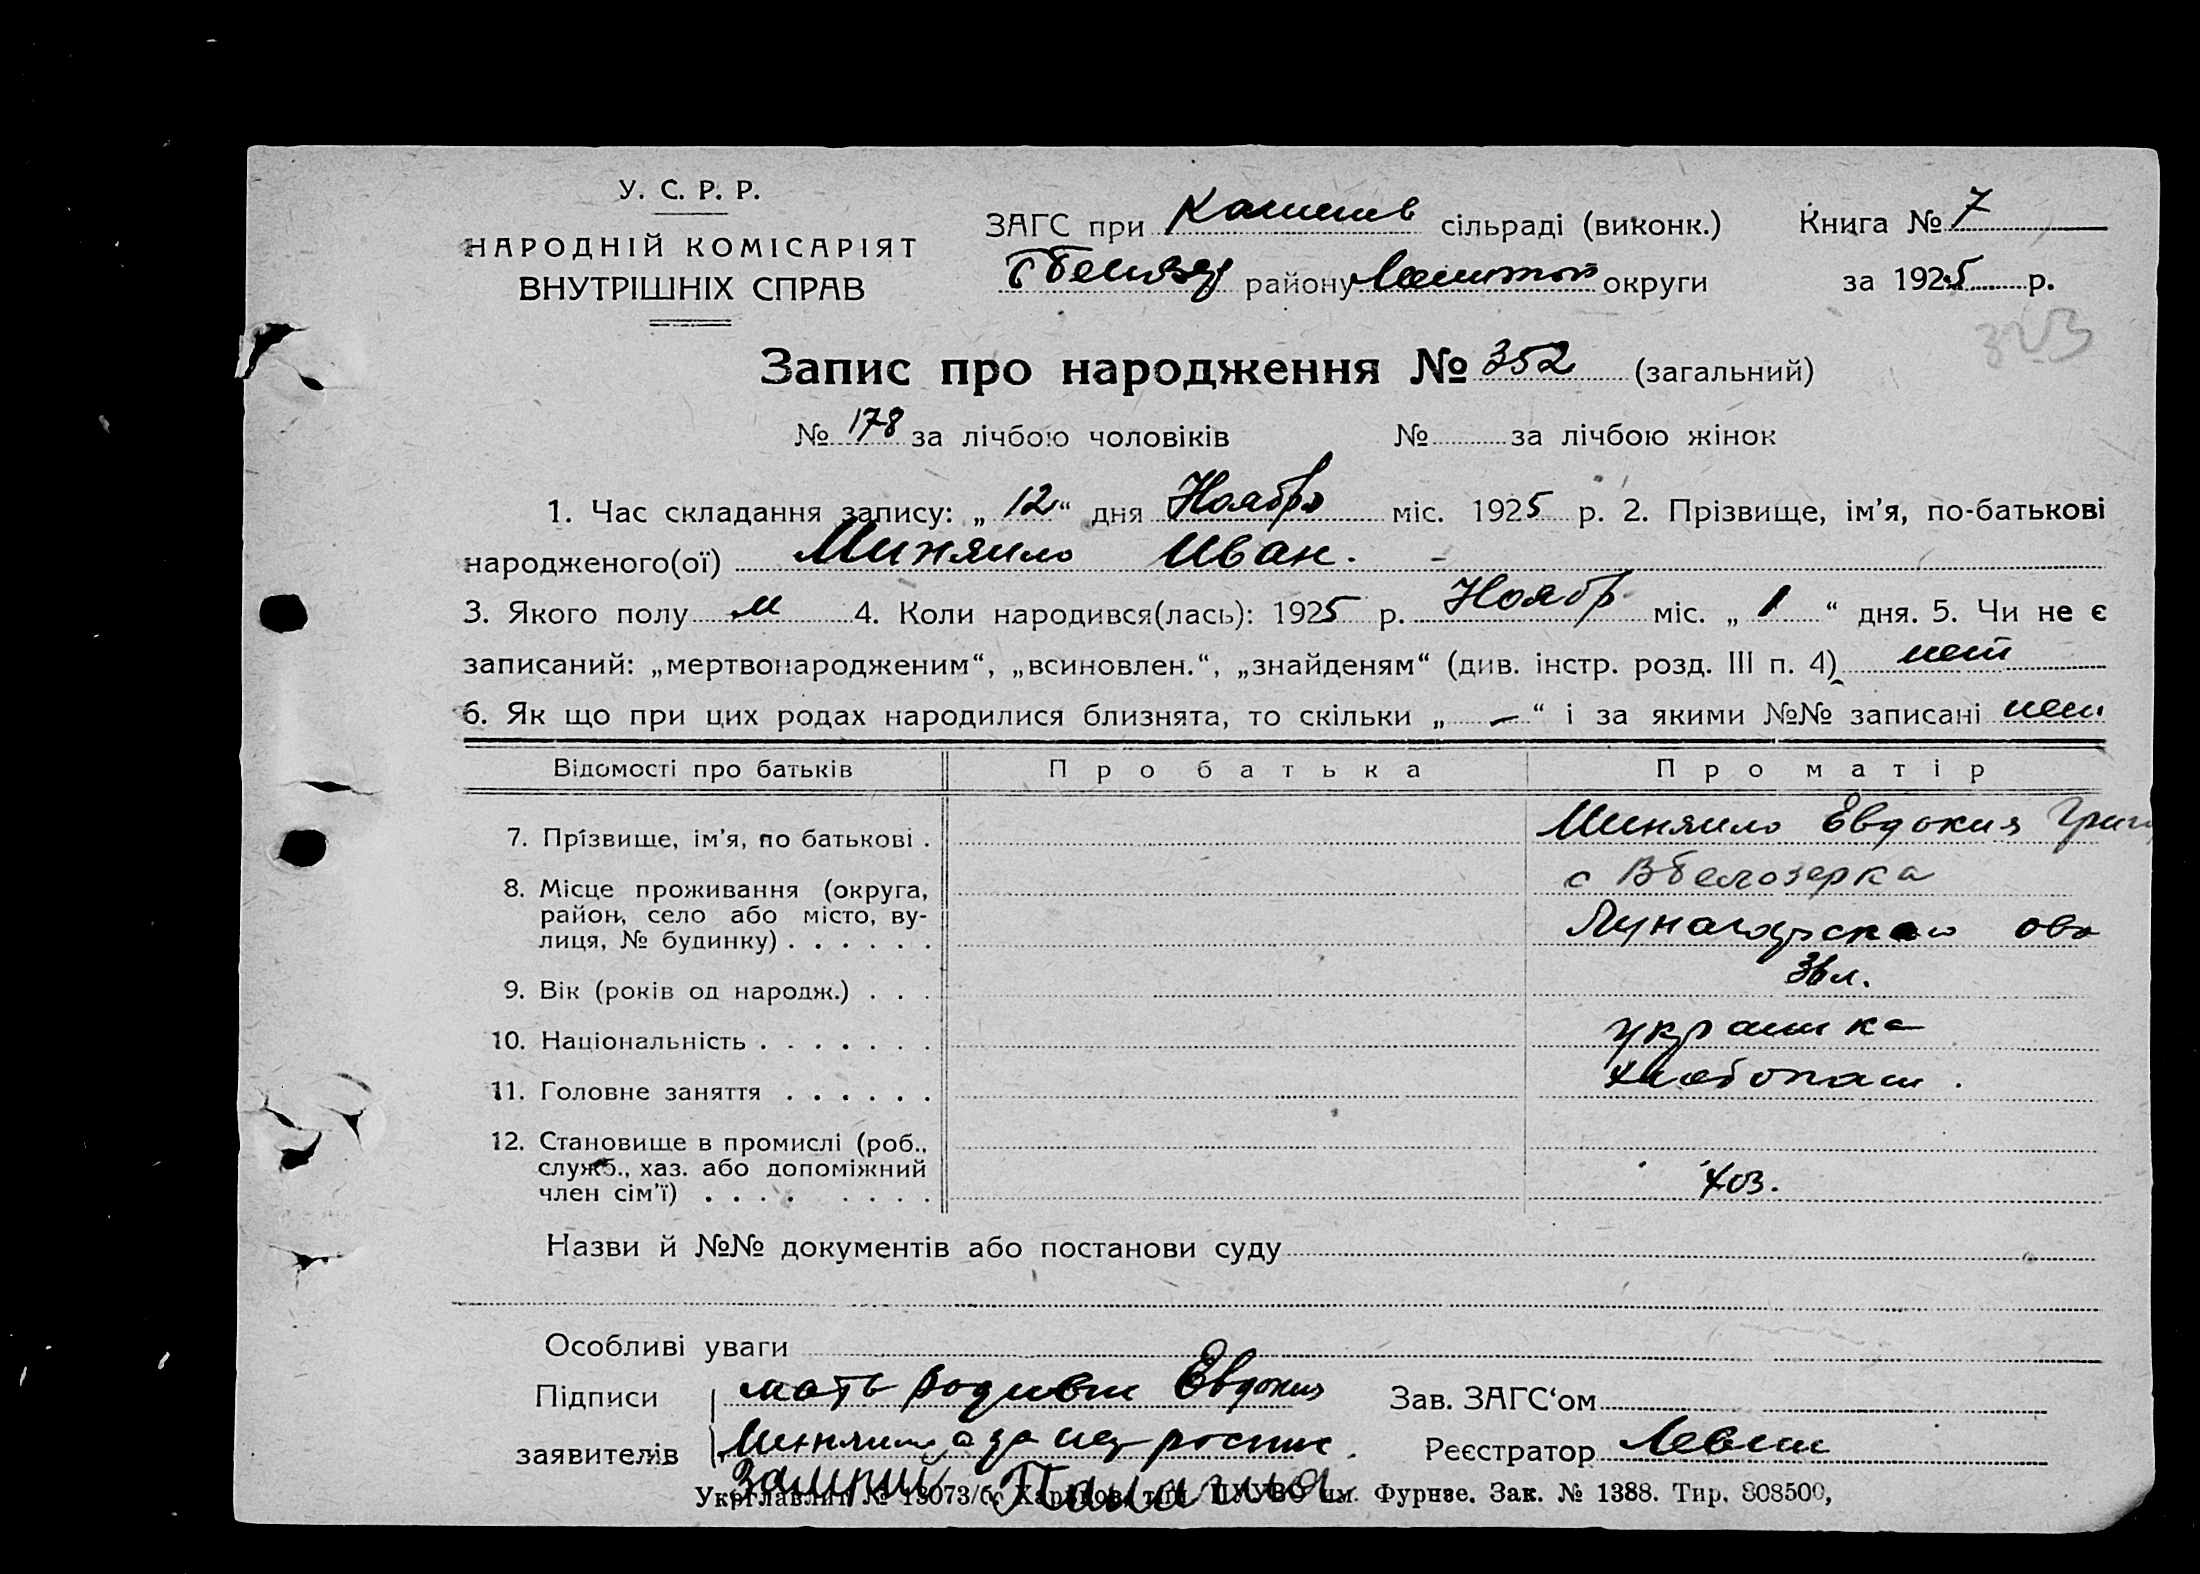 У. С. Р. Р.
НАРОДНІЙ КОМІСАРІЯТ
ВНУТРІШНІХ СПРАВ
ЗАГС при сільраді (виконк.) Книга № 7
району округи за 1925 р.
323
Запис про народження № 352 (загальний)
№ 178 за лічбою чоловіків № за лічбою жінок
1. Час складання запису: „ 12 “ дня Ноября міс. 1925 р. 2. Прізвище, ім’я, по-батькові
народженого(ої) Миняило Иван.
3. Якого полу м 4. Коли народився(лась): 1925 р. Ноябр міс. „ 1 “ дня. 5. Чи не є
записаний: „мертвонародженим“, „всиновлен.“, „знайденям“ (див. інстр. розд. III п. 4) нет
6. Як що при цих родах народилися близнята, то скільки „ — “ і за якими №№ записані нет
Відомості про батьків Про батька Про матір
7. Прізвище, ім’я, по батькові . Миняило Евдокия Григ
8. Місце проживання (округа, с Вбелозерка
район, село або місто, ву-
лиця, № будинку) . . . . . .
9. Вік (років од народж.) . . . 36 л.
10. Національність . . . . . . . украинка
11. Головне заняття . . . . . . хлебопаш.
12. Становище в промислі (роб.,
служб., хаз. або допоміжний
член сім’ї) . . . . . . . . хоз.
Назви й №№ документів або постанови суду
Особливі уваги
Підписи мать Евдокия Зав. ЗАГС‘ом
заявителів Миняило а за Реєстратор
Укрглавліт № 13073/бс Фурнзе. Зак. № 1388. Тир. 808500,